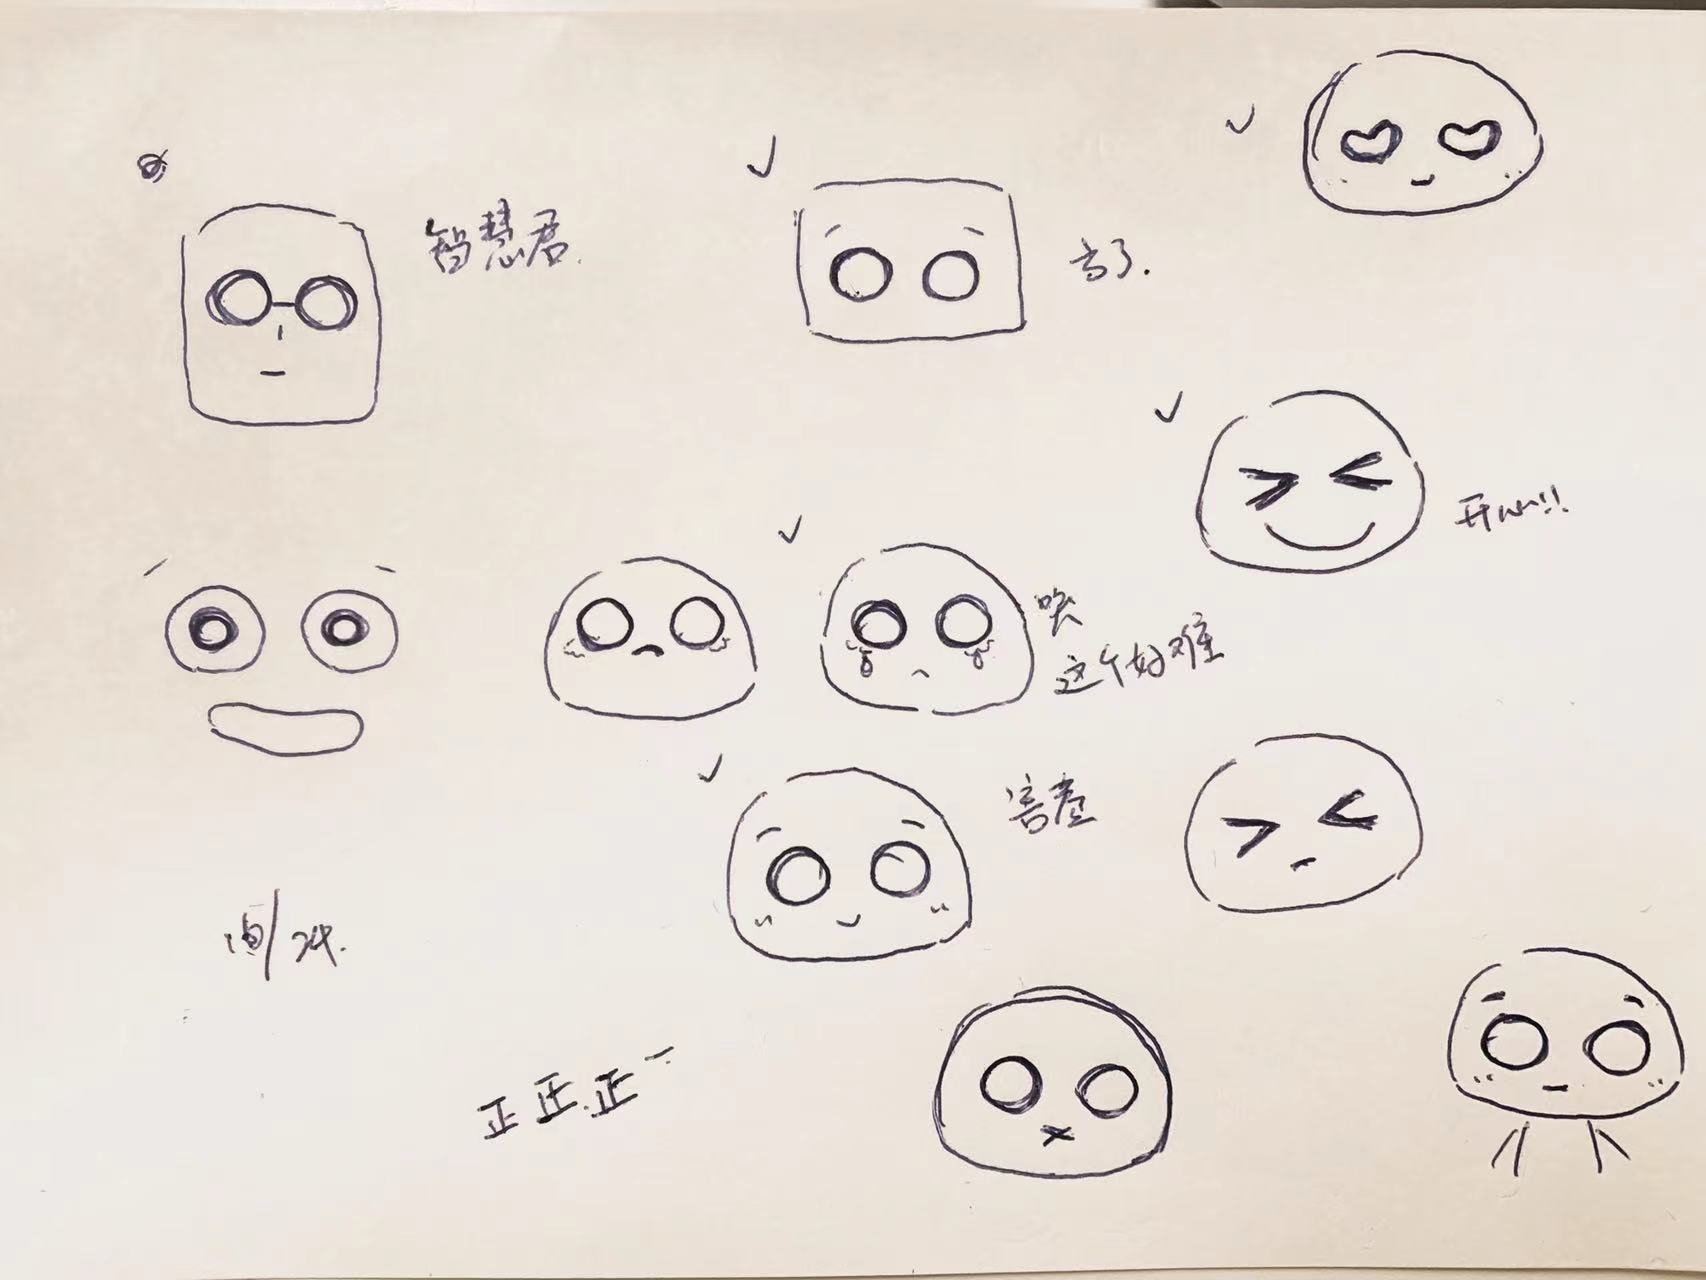 智慧君.
方了.
开心!!
哭
这个好难
害羞
正正.正一